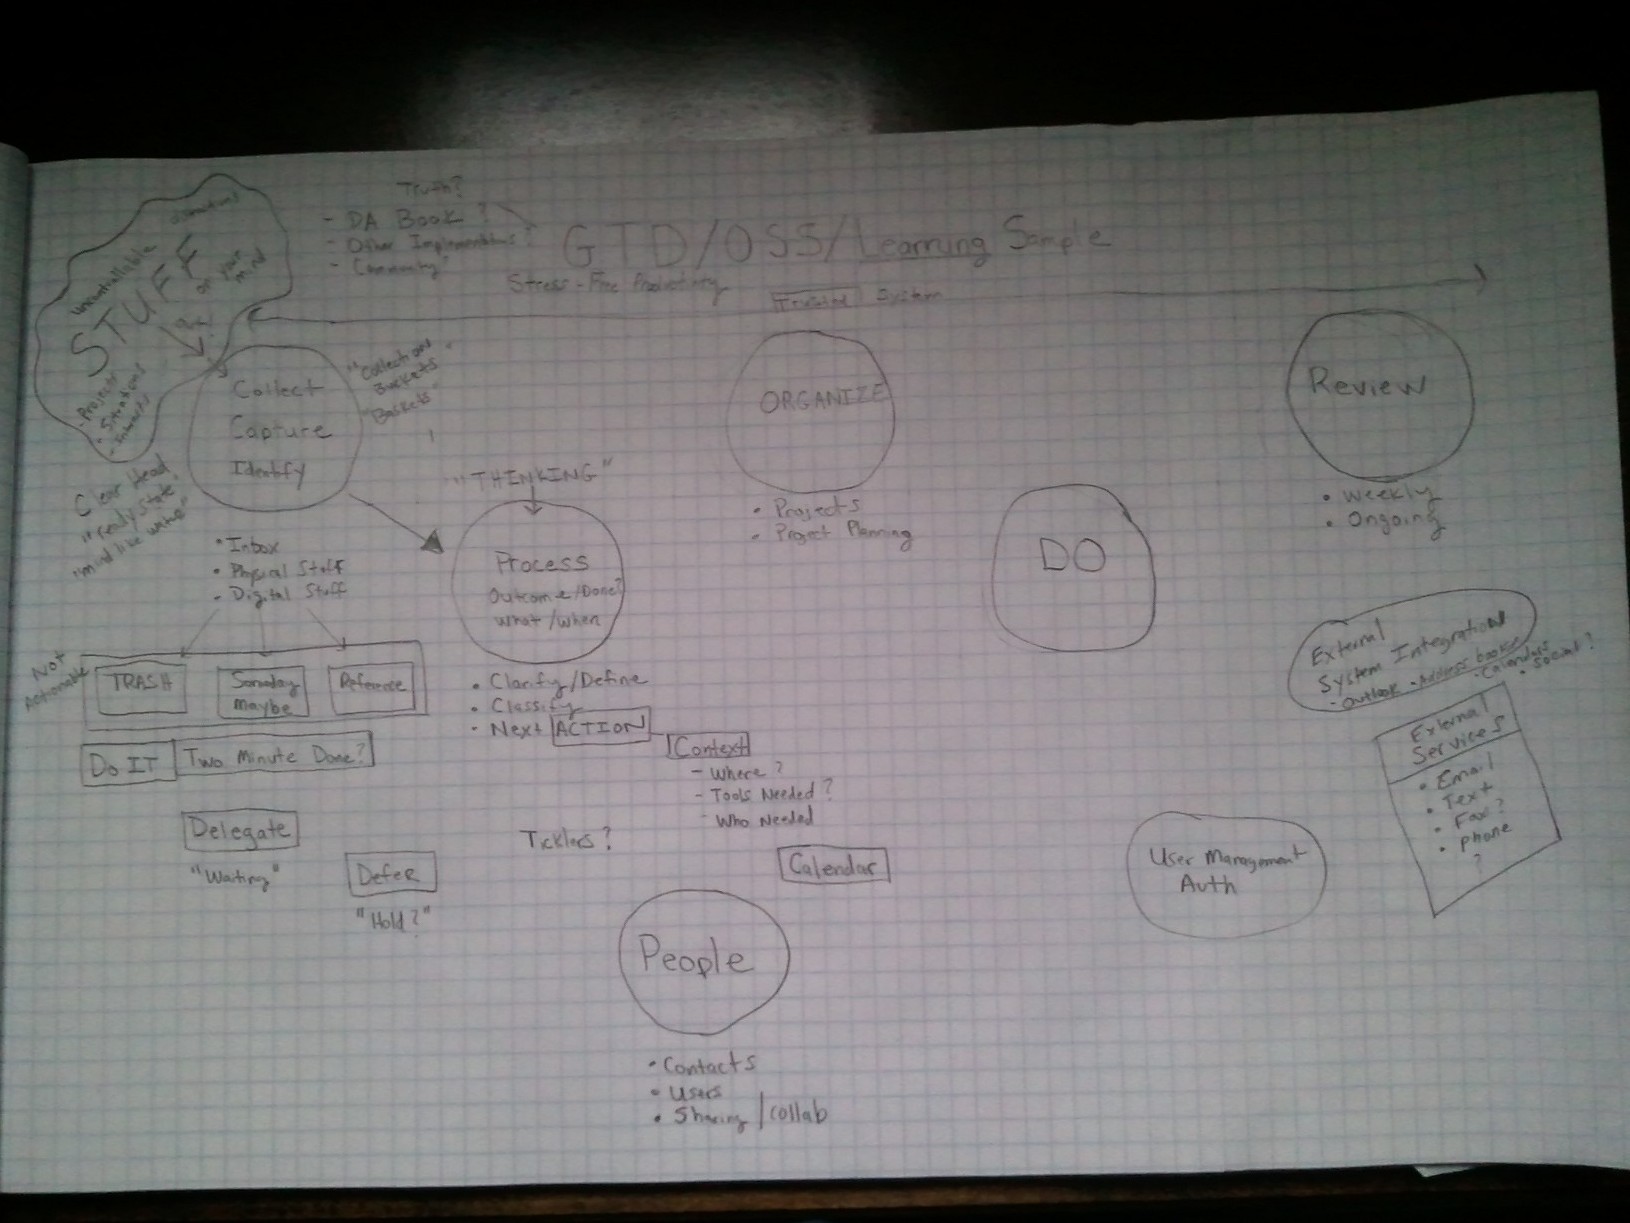 Truth?
- DA Book?
- Other Implementations?
- Community"
GTD/OSS/Learning Sample
Stress-Free Productivity
Trusted System
uncontrollable
STUFF
on your
mind
- Projects
- Situations
- Interests
Collect
Capture
Identify
"Collection
Buckets"
"Baskets"
Clear Head
"ready state"
"mind like water"
• Inbox
• Physical Stuff
- Digital Stuff
Not
Actionable
TRASH
Someday
maybe
Reference
Do IT
Two Minute Done?
Delegate
"Waiting"
Defer
"Hold?"
"THINKING"
Process
Outcome/Done?
What/When
• Clarify/Define
• Classify
- Next ACTION
Context
- Where?
- Tools Needed?
- Who Needed
Ticklers?
Calendar
ORGANIZE
• Projects
• Project Planning
DO
Review
• Weekly
• Ongoing
External
System Integration
- Outlook • Address books
- Calendars
• Social?
External
Services
• Email
• Text
• Fax?
• Phone
?
User Management
Auth
People
• Contacts
• Users
• Sharing/collab